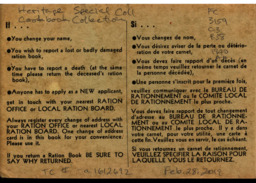 Heritage Special Coll
Cookbook Collection
If...
●You change your name,
●You wish to report a lost or badly damaged
ration book,
●You have to report a death (at the same
time please return the deceased's ration
book),
●Anyone has to apply as a NEW applicant,
get in touch with your nearest RATION
OFFICE or LOCAL RATION BOARD.
Always register every change of address with
your RATION OFFICE or nearest LOCAL
RATION BOARD. One change of address
card is in this book for your convenience.
Please use it.
If you return a Ration Book BE SURE TO
SAY WHY RETURNED.
Si...
●Vous changez de nom,
●Vous désirez aviser de la perte ou détério-
ration de votre carnet,
●Vous devez faire rapport d'un décès (en
même temps veuillez retourner le carnet de
la personne décédée),
●Une personne s'inscrit pour la première fois,
veuillez communiquer avec le BUREAU DE
RATIONNEMENT ou le COMITÉ LOCAL
DE RATIONNEMENT le plus proche.
Vous devez faire rapport de tout changement
d'adresse au BUREAU DE RATIONNE-
MENT ou au COMITÉ LOCAL DE RA-
TIONNEMENT le plus proche. Il y a dans
votre carnet, pour votre utilité, une carte à
cette fin. Veuillez vous en servir le cas échéant.
Si vous retournez un carnet de rationnement,
VEUILLEZ SPÉCIFIER LA RAISON POUR
LAQUELLE VOUS LE RETOURNEZ.
Feb. 28, 2017